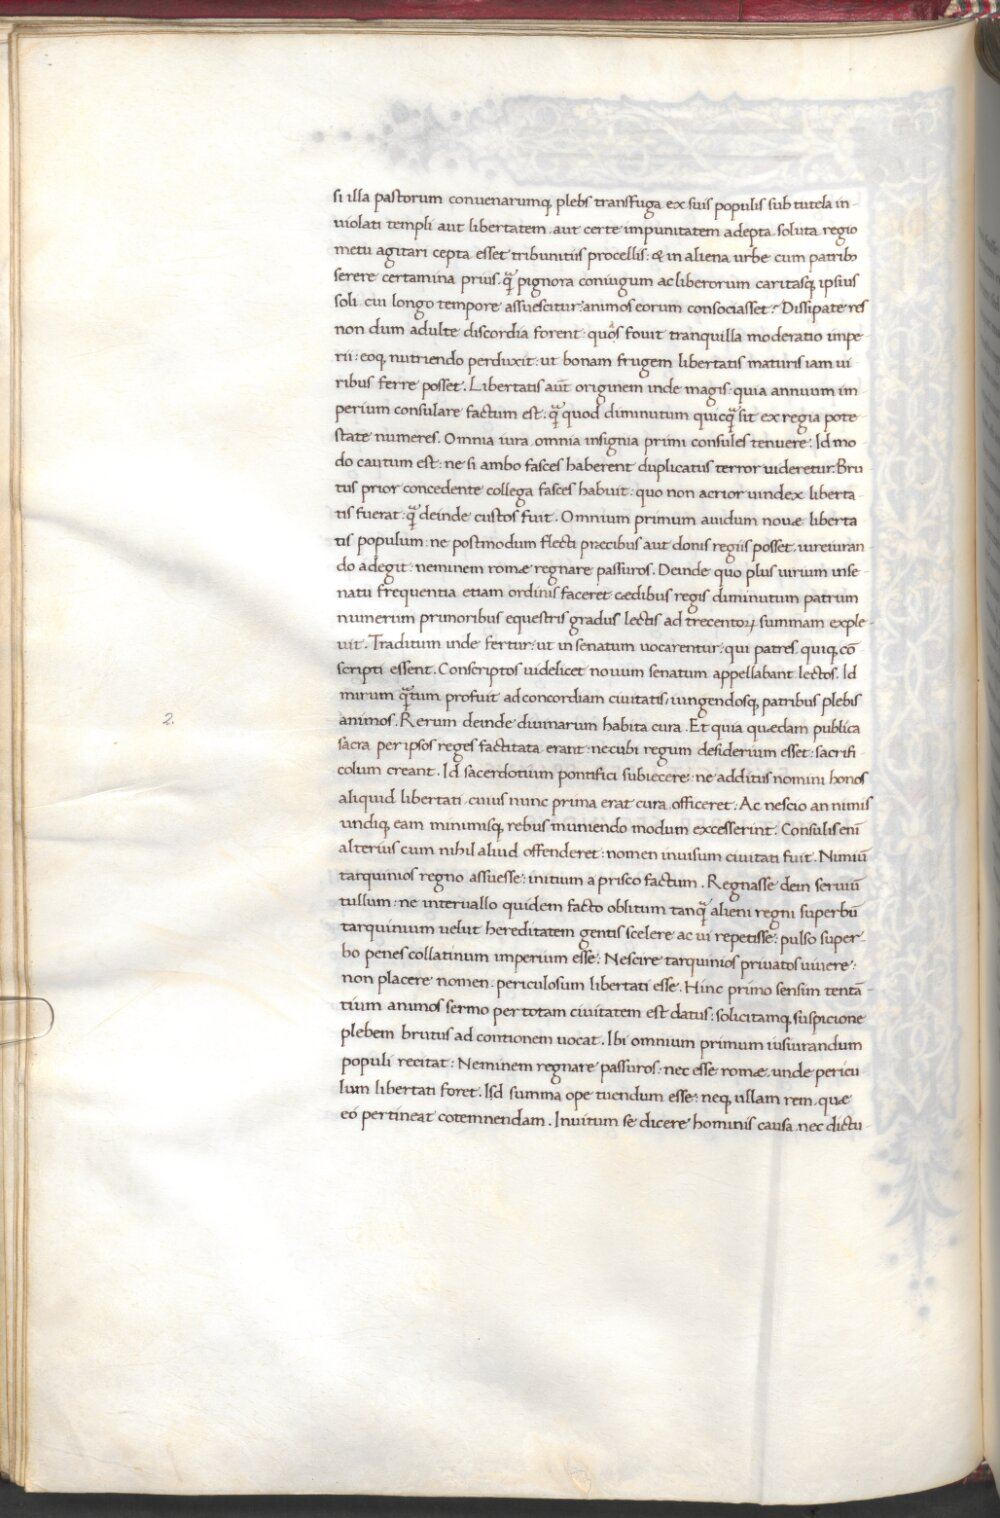 si illa pastorum conuenarumq; plebs transfuga ex suis populis sub tutela in-
uiolati templi aut libertatem aut certe impunitatem adepta soluta regio
metu agitari cepta esset tribunitiis procellis: & in aliena urbe cum patrib;
serere certamina prius. q̃ pignora coniugum ac liberorum caritasq; ipsius
soli cui longo tempore assuescitur: animos eorum consociasset? Dissipate res
non dum adulte discordia forent: quos fouit tranquilla moderatio impe
rii: eoq; nutriendo perduxit: ut bonam frugem libertatis maturis iam ui
ribus ferre posset. Libertatis aũt originem inde magis: quia annuum im-
perium consulare factum est: q̃ quod diminutum quicq̃ sit ex regia pote
state numeres. Omnia iura omnia insignia primi consules tenuere: Id mo
do cautum est: ne si ambo fasces haberent duplicatus terror uideretur. Bru
tus prior concedente collega fasces habuit: quo non acrior uindex liberta
tis fuerat: q̃ deinde custos fuit. Omnium primum auidum nouæ liberta
tis populum: ne postmodum flecti præcibus aut donis regiis posset. iureiuran
do adegit: neminem romæ regnare passuros. Deinde quo plus uirium in se-
natu frequentia etiam ordinis faceret cædibus regis diminutum patrum
numerum primoribus equestris gradus lectis ad trecentoꝝ summam exple-
uit. Traditum inde fertur: ut in senatum uocarentur: qui patres quiq; cõ
scripti essent. Conscriptos uidelicet nouum senatum appellabant lectos. Id
mirum q̃tum profuit ad concordiam ciuitatis, iungendosq; patribus plebis
2.
animos. Rerum deinde diuinarum habita cura. Et quia quædam publica
sacra per ipsos reges factitata erant: necubi regum desiderium esset: sacrifi
colum creant. Id sacerdotium pontifici subiecere: ne additus nomini honos
aliquid libertati cuius nunc prima erat cura officeret. Ac nescio an nimis
undiq; eam minimisq; rebus muniendo modum excesserint. Consulis eni̅
alterius cum nihil aliud offenderet: nomen inuisum ciuitati fuit. Nimiũ
tarquinios regno assuesse: initium a prisco factum. Regnasse dein seruiũ
tullum: ne interuallo quidem facto oblitum tanq̃ alieni regni superbũ
tarquinium uelut hereditatem gentis scelere ac ui repetisse: pulso super-
bo penes collatinum imperium esse: Nescire tarquinios priuatos uiuere:
non placere nomen. periculosum libertati esse. Hinc primo sensim tentã-
tium animos sermo per totam ciuitatem est datus: solicitamq; suspicione
plebem brutus ad contionem uocat. Ibi omnium primum iusiurandum
populi recitat: Neminem regnare passuros: nec esse romæ unde pericu
lum libertati foret. Isd summa ope tuendum esse: neq; ullam rem quæ
eo pertineat cotemnendam. Inuitum se dicere hominis causa nec dictu-